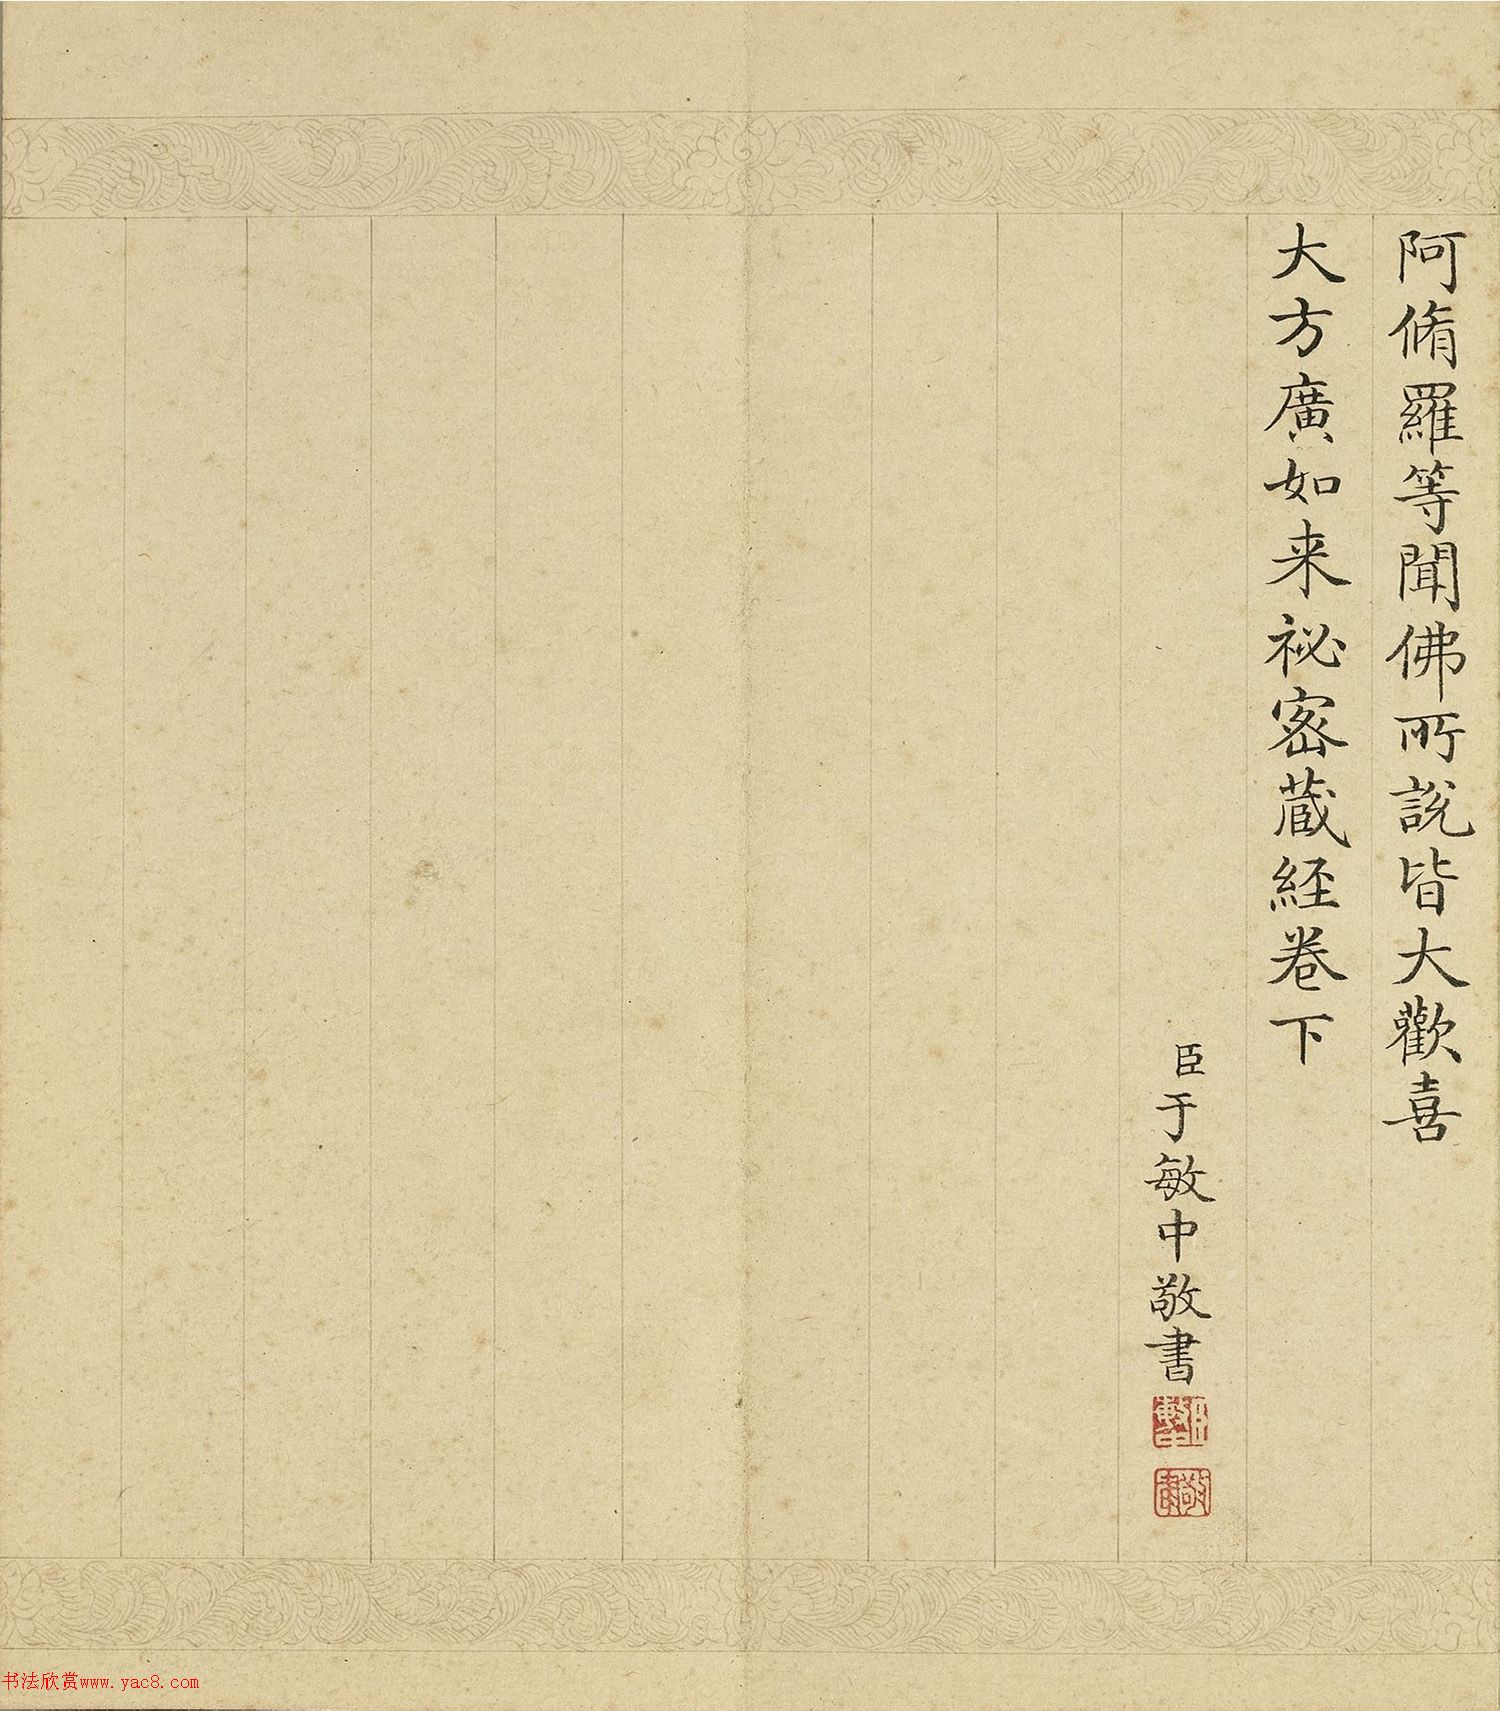 阿脩羅等聞佛所說皆大歡喜
大方廣如来祕密蔵經卷下
臣于敏中敬書
书法欣赏www.yac8.com